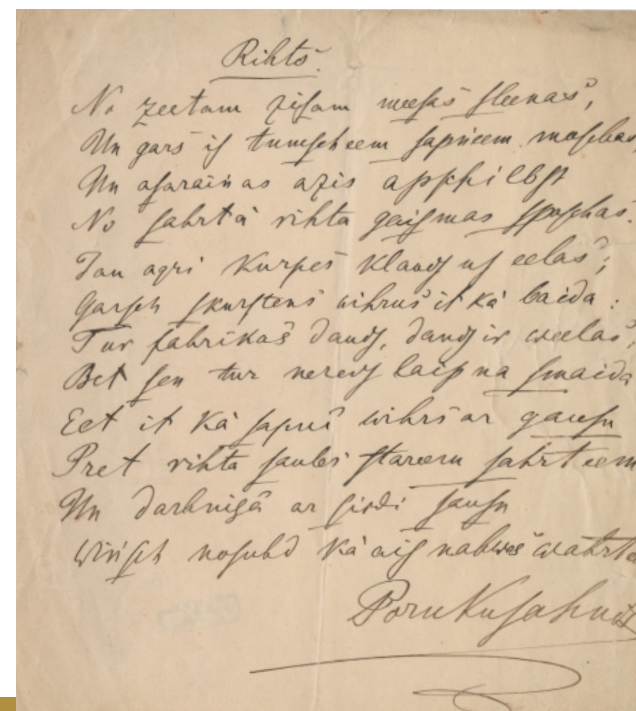 Rihts.
No zeetam zisam meesas sleenas,
Un gars is tumscheem sapneem moschas,
Un asarainas azis apschilbst
No sahrtà rihta gaismas sposchas.
Jau agri kurpes klauds us eelas;
Garsch skurstens wihrus it kà baida:
Tur fabrikas daudz, daudz ir weelas,
Bet sen tur neredz laipna smaida
Eet it kà sapnì wihrs ar gausu
Pret rihta saules stareem sahrteem
Un darbnizà ar sirdi sausu
Winsch nosuhd kà ais nahwes wahrt
Poruku Jahnis